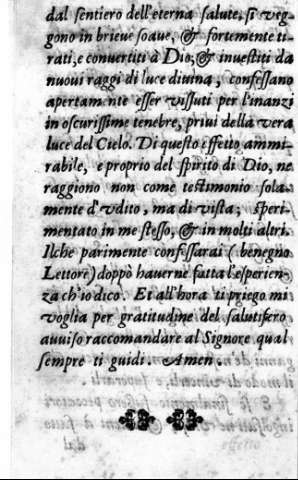 dal sentiero dell'eterna salute, si veg-
gono in brieue soaue, & fortemente ti-
rati, e conuertiti à Dio, & inuestiti da
nuoui raggi di luce diuina, confessano
apertamente esser vissuti per l'inanzi
in oscurissime tenebre, priui della vera
luce del Cielo. Di questo effetto ammi-
rabile, e proprio del spirito di Dio, ne
raggiono non come testimonio sola-
mente d'vdito, ma di vista; speri-
mentato in me stesso, & in molti altri.
Ilche parimente confessarai (benegno
Lettore) doppò hauerne fatta l'esperien-
za ch'io dico. Et all'hora ti priego mi
voglia per gratitudine del salutifero
auuiso raccomandare al Signore qual
sempre ti guidi. Amen.